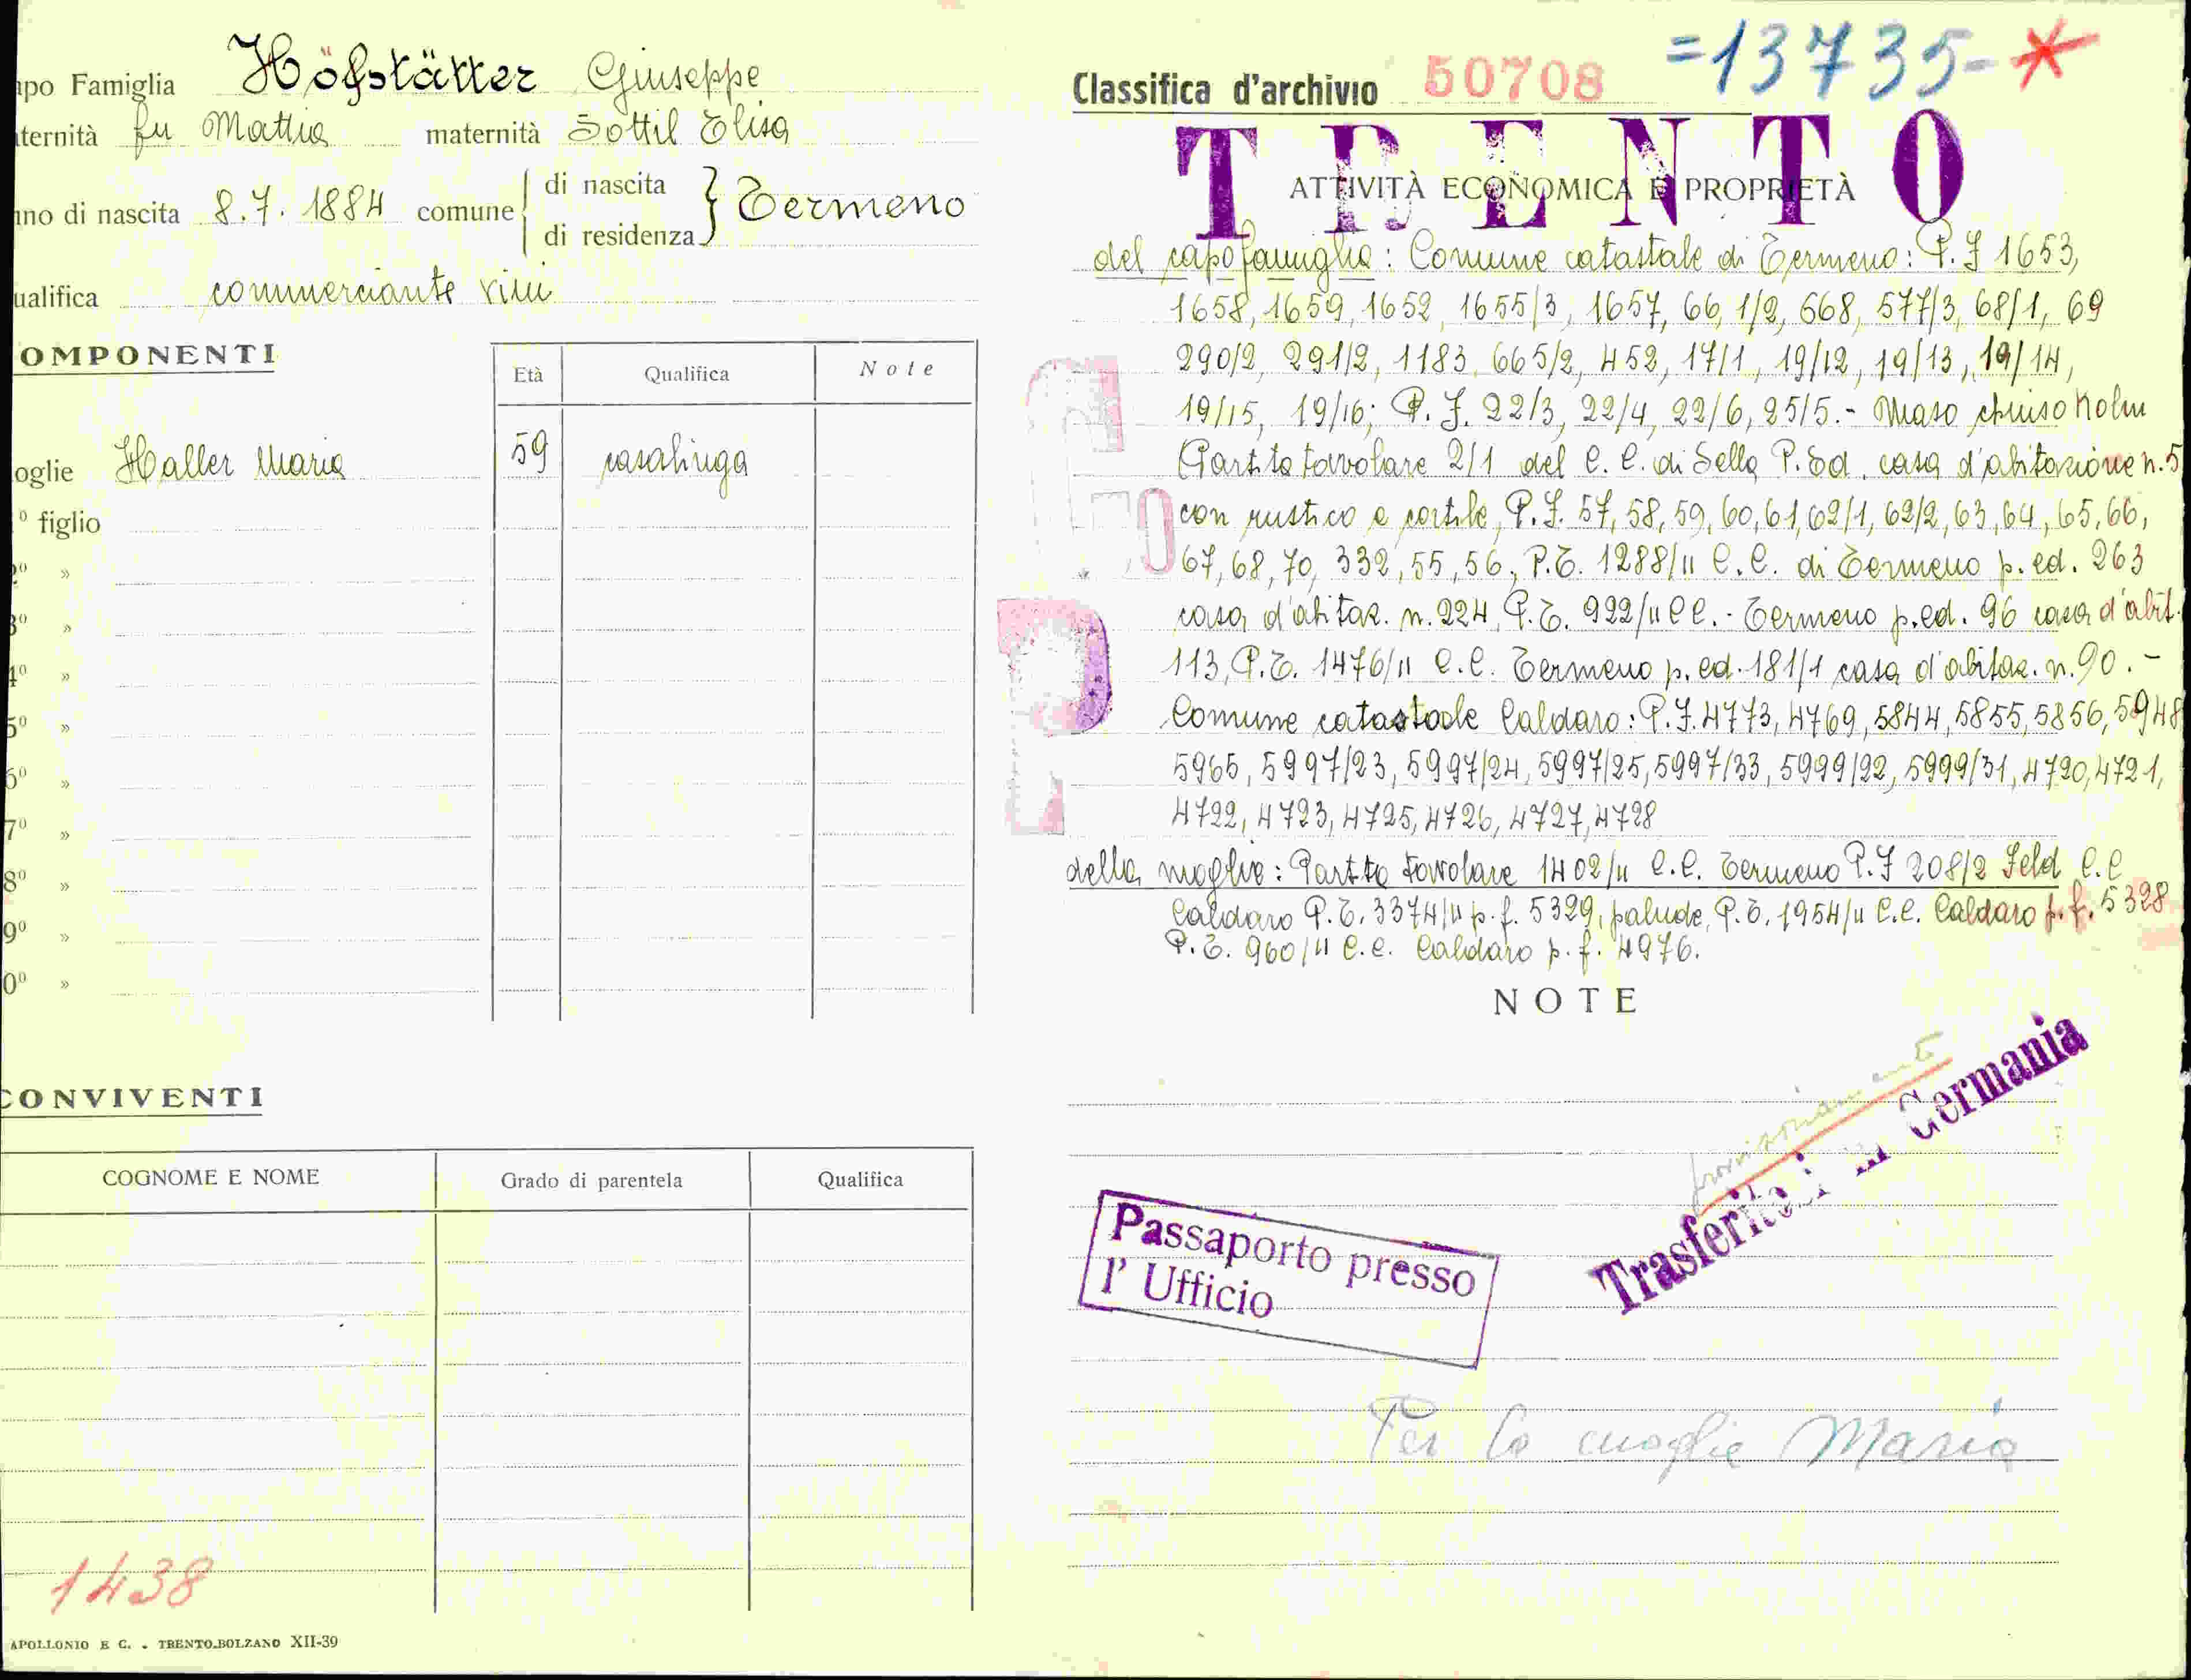 apo Famiglia Höfstätter Giuseppe
aternità fu Mattia maternità Sottil Elisa
nno di nascita 8.7.1884 comune di nascita di residenza Termeno
ualifica commerciante vini
OMPONENTI
Età Qualifica Note
oglie Haller Maria 59 casalinga
º figlio
2º »
3º »
4º »
5º »
6º »
7º »
8º »
9º »
0º »
CONVIVENTI
COGNOME E NOME Grado di parentela Qualifica
1438
APOLLONIO E C. - TRENTO-BOLZANO XII-39
Classifica d'archivio 50708 =13735-*
TRENTO
ATTIVITÀ ECONOMICA E PROPRIETÀ
del capofamiglia: Comune catastale di Termeno: P.F 1653,
1658, 1659, 1652, 1655/3, 1657, 66, 1/2, 668, 577/3, 68/1, 69
290/2, 291/2, 1183, 665/2, 452, 17/1, 19/12, 19/13, 19/14,
19/15, 19/16; P.F. 22/3, 22/4, 22/6, 25/5.- Maso chiuso Kolm
Partita tavolare 2/1 del C.C. di Sella P.Ed. casa d'abitazione n.5
con rustico e cortile, P.F. 57, 58, 59, 60, 61, 62/1, 62/2, 63, 64, 65, 66,
67, 68, 70, 332, 55, 56, P.T. 1288/II C.C. di Termeno p.ed. 263
casa d'abitaz. n.224, P.T. 922/II CC.- Termeno p.ed. 96 casa d'abit.
113, P.T. 1476/II C.C. Termeno p.ed. 181/1 casa d'abitaz. n.90.-
Comune catastale Caldaro: P.F. 4773, 4769, 5844, 5855, 5856, 5948
5965, 5997/23, 5997/24, 5997/25, 5997/33, 5999/22, 5999/31, 4720, 4721,
4722, 4723, 4725, 4726, 4727, 4728
della moglie: Partita tavolare 1402/II C.C. Termeno P.F 208/2 Feld C.C
Caldaro P.T. 3374/II p.f. 5329, palude, P.T. 1954/II C.C. Caldaro p.f. 5328
P.T. 960/II C.C. Caldaro p.f. 4976.
NOTE
provvisoriamente
Trasferitosi in Germania
Passaporto presso
l' Ufficio
Per la moglie Maria